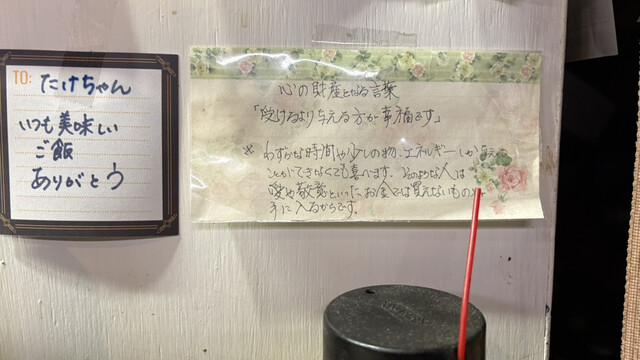 TO: たけちゃん
いつも美味しい
ご飯
ありがとう
心の財産となる言葉
「受けるより与える方が幸福です」
※ わずかな時間や少しの物、エネルギーしか与える
ことができなくても喜べます。このような人は
愛や敬意といった お金では買えないもの
手に入るからです。